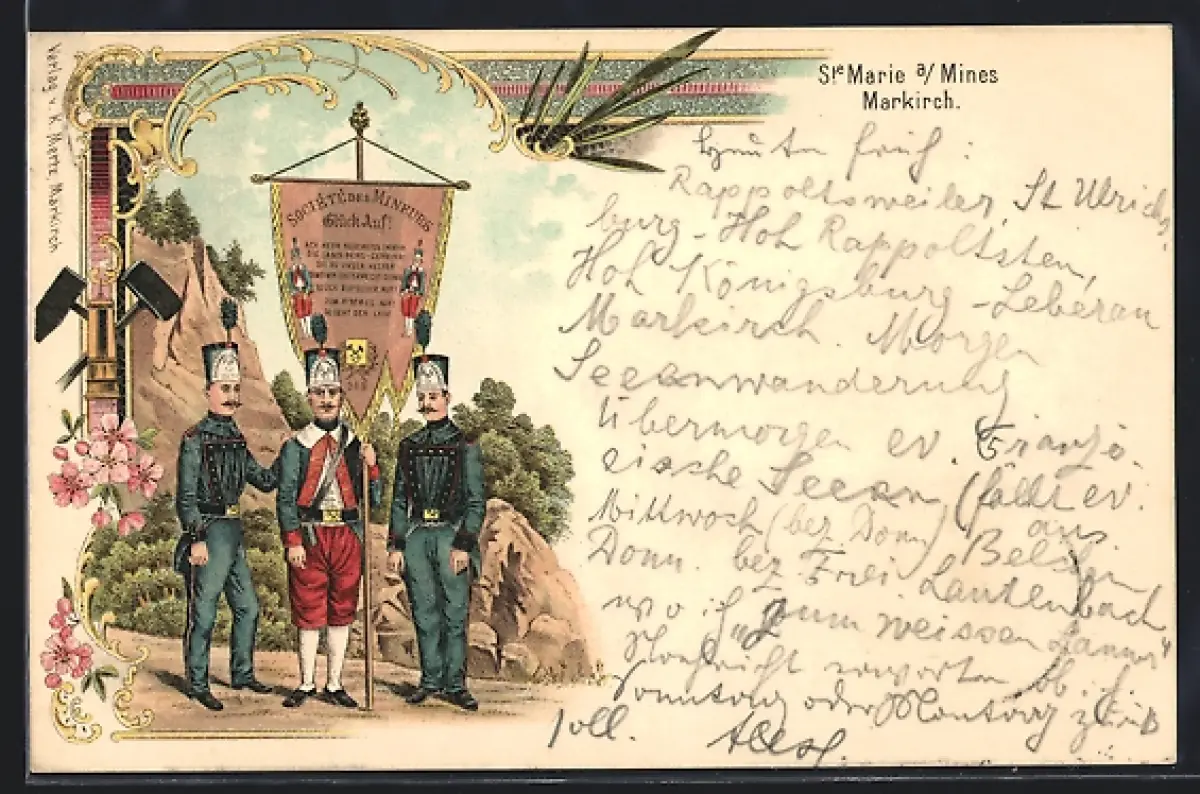 Verlag v. K. Martz, Markirch
Ste Marie a/ Mines
Markirch.
SOCIÉTÉ DES MINEURS
Glück Auf!
Heute früh:
Rappoltsweiler, St Ulrichs
burg - Hoh Rappoltsten,
Hoh Königsburg - Leberau
Markirch. Morgen
Seeenwanderung
Übermorgen ev. Franzö-
sische Seeen (fällt ev. aus.
Mittwoch (bez Donn) Belchen
Donn. bez. Frei Lautenbach
wo ich "zum weissen Lamm"
Nachricht erwarten ob ich
Sonntag oder Montag zurück
soll.